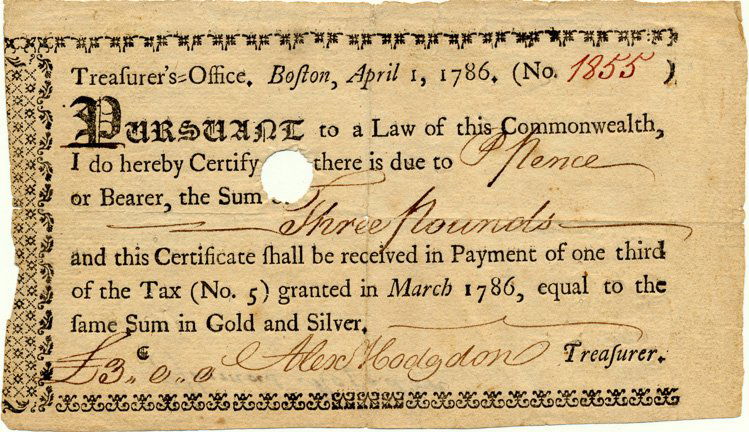 Treaſurer's=Office. Boſton, April 1, 1786. (No. 1855 )
PURSUANT to a Law of this Commonwealth,
I do hereby Certify there is due to
or Bearer, the Sum
Three Pounds
and this Certificate ſhall be received in Payment of one third
of the Tax (No. 5) granted in March 1786, equal to the
ſame Sum in Gold and Silver.
£3.. 0.. 0 Alex Hodgdon Treaſurer.